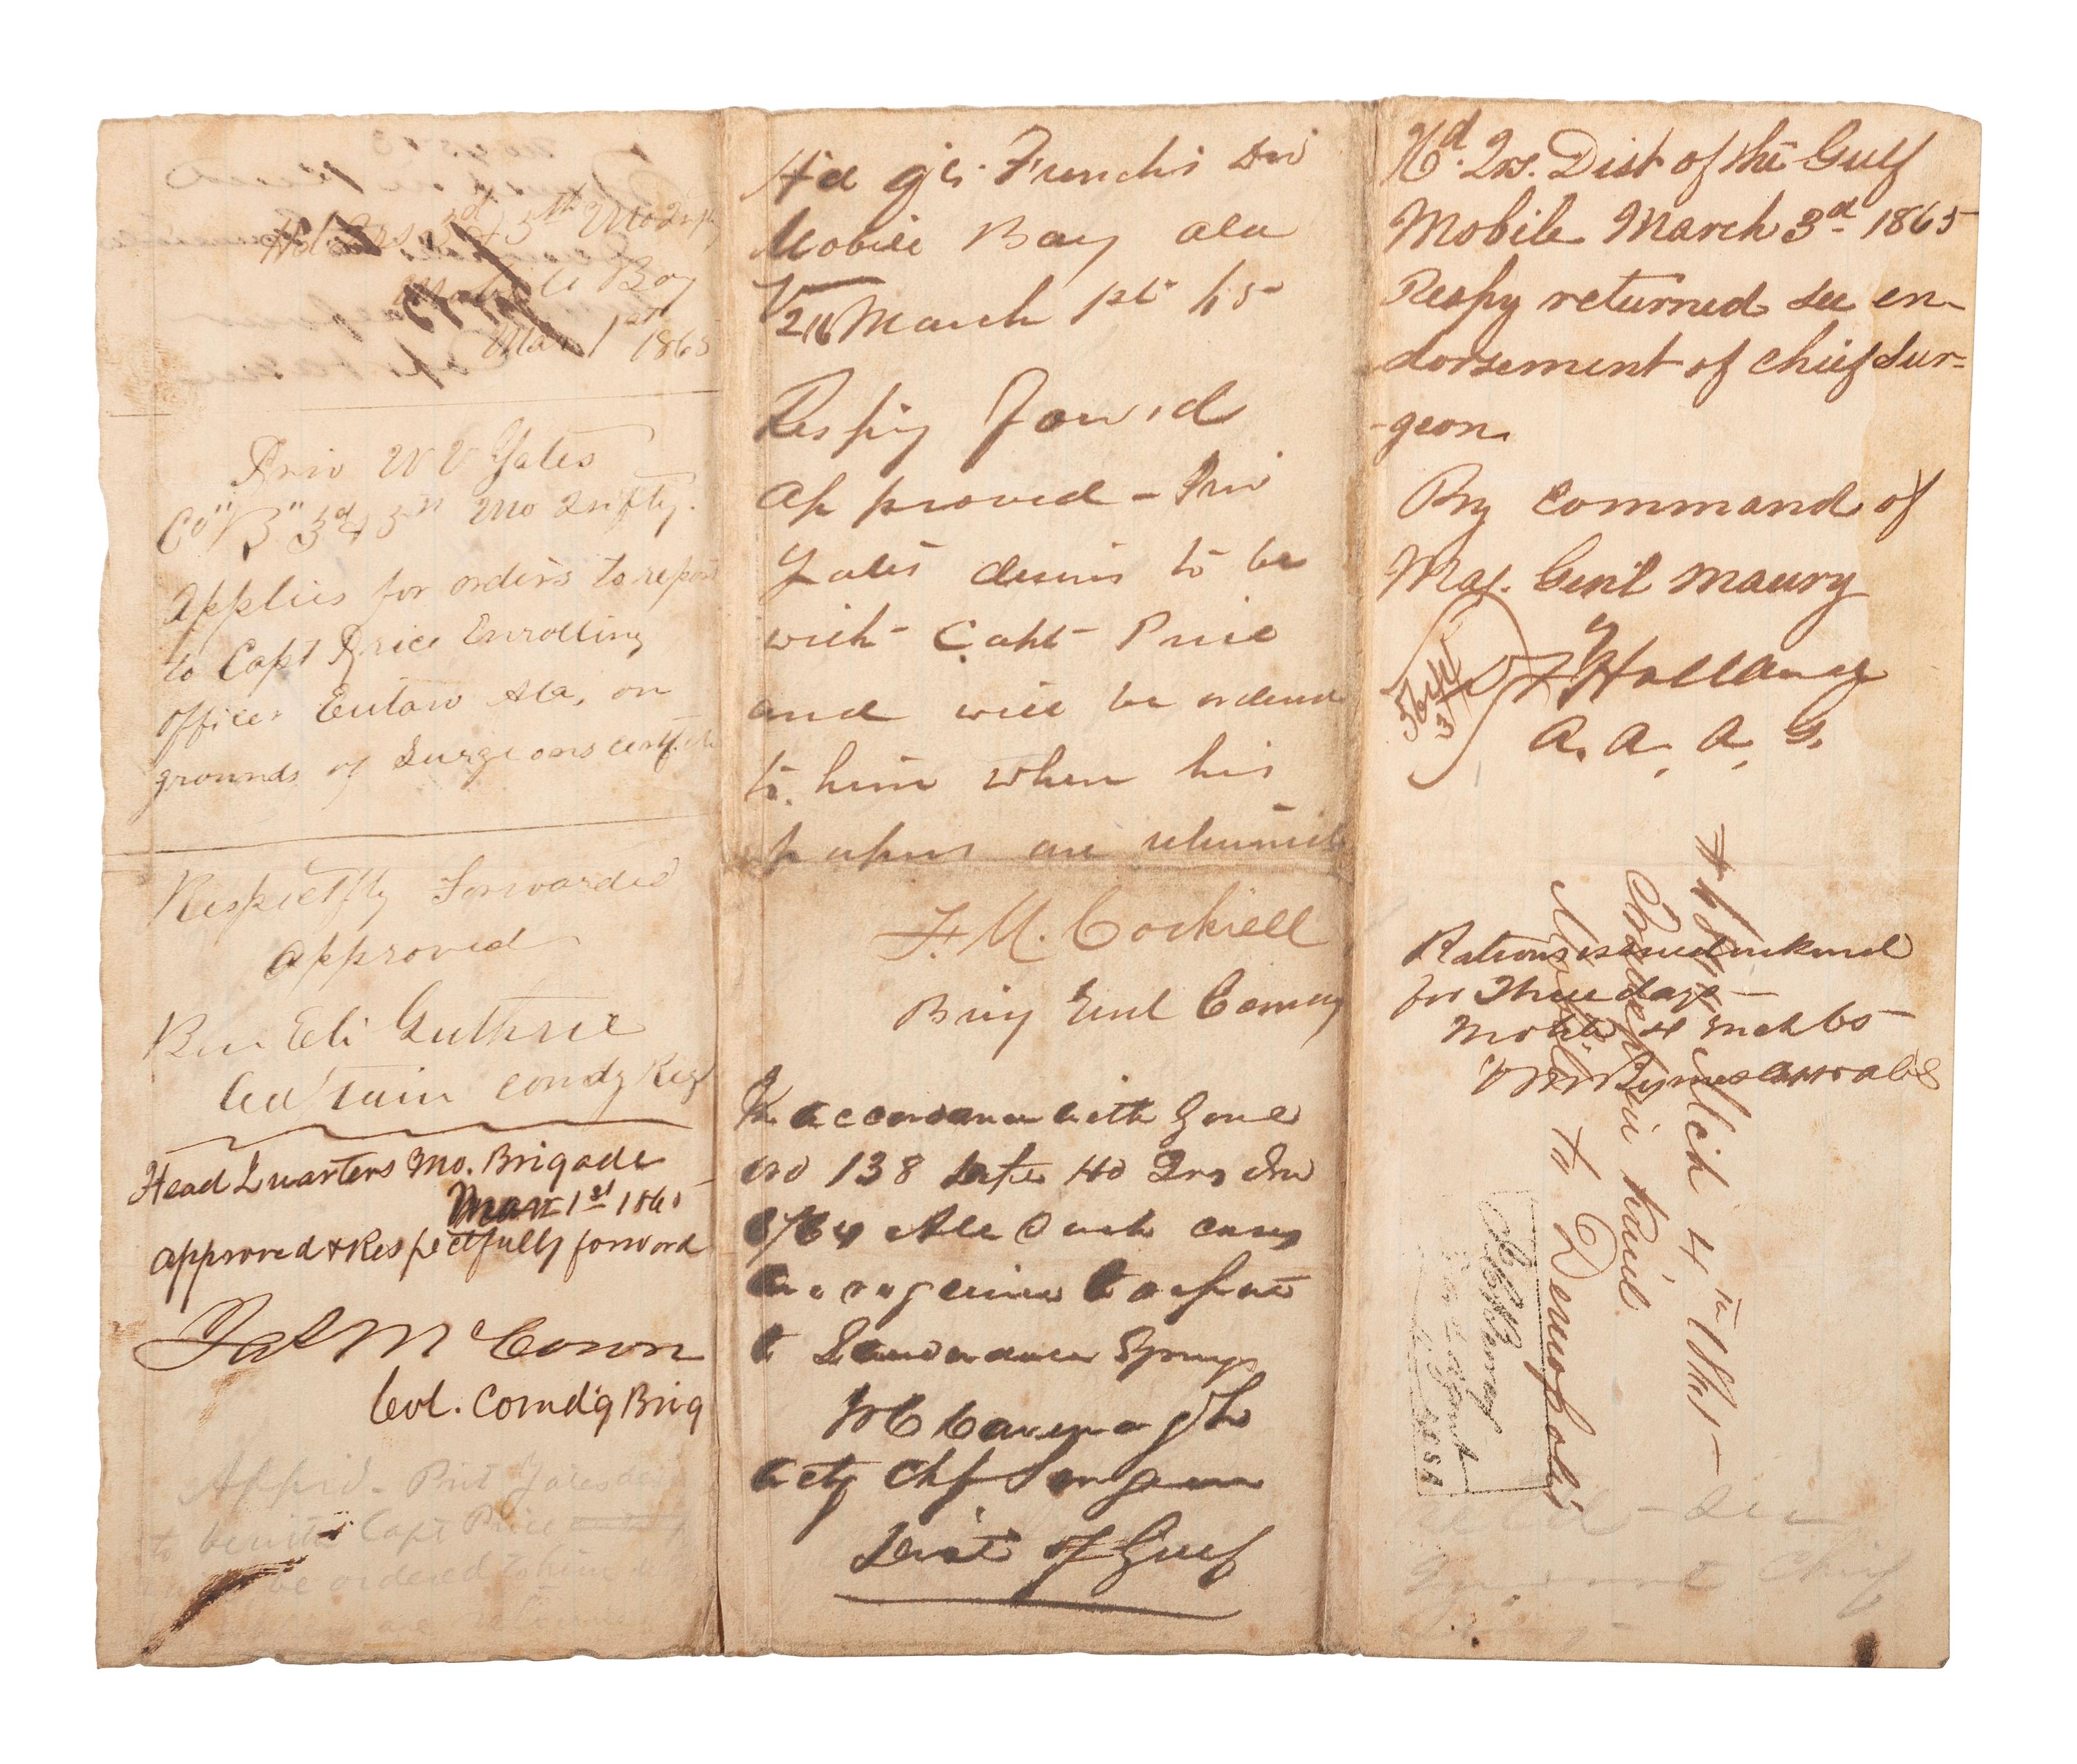 Hd Qrs 3d & 5th Mo Inft
Mobile Bay
Mar 1st 1865
Priv W V Yates
Co "B" 3d & 5th Mo Infty.
applies for orders to report
to Capt Price Enrolling
officer Eutaw Ala, on
grounds of Surgeons certfct
Respectfly Forwarded
approved
Ben Eli Guthrie
Captain comdg Regt
Head Quarters Mo. Brigade
Mar 1st 1865
approved & Respectfully forword
Jas McCown
Col. Comd'g Brig
Appr'd - Priv Yates
to be with Capt Price
be ordered to him
are
Hd qrs Frenchs Div
Mobile Bay ala
March 1st 65
Respy Forw'd
approved - Priv
Yates desires to be
with Capt Price
and will be ordered
to him when his
papers are returned
F. M. Cockrell
Brig Genl Comdg
In accordance with Genl
No 138
64 All Such cases
are required to report
to Lauderdale Springs
Cavenagh
actg Chf Surgeon
Dist of Gulf
Hd. Qrs. Dist of the Gulf
Mobile March 3d 1865
Respy returned see en-
dorsement of chief Sur-
-geon.
By command of
Maj. Genl Maury
Holland
A. A. A. G.
Rations issued
for Three days
Mobile 4 Mch 65
Byrnes
Mch 4th 1865
train
Mobile to Demopolis